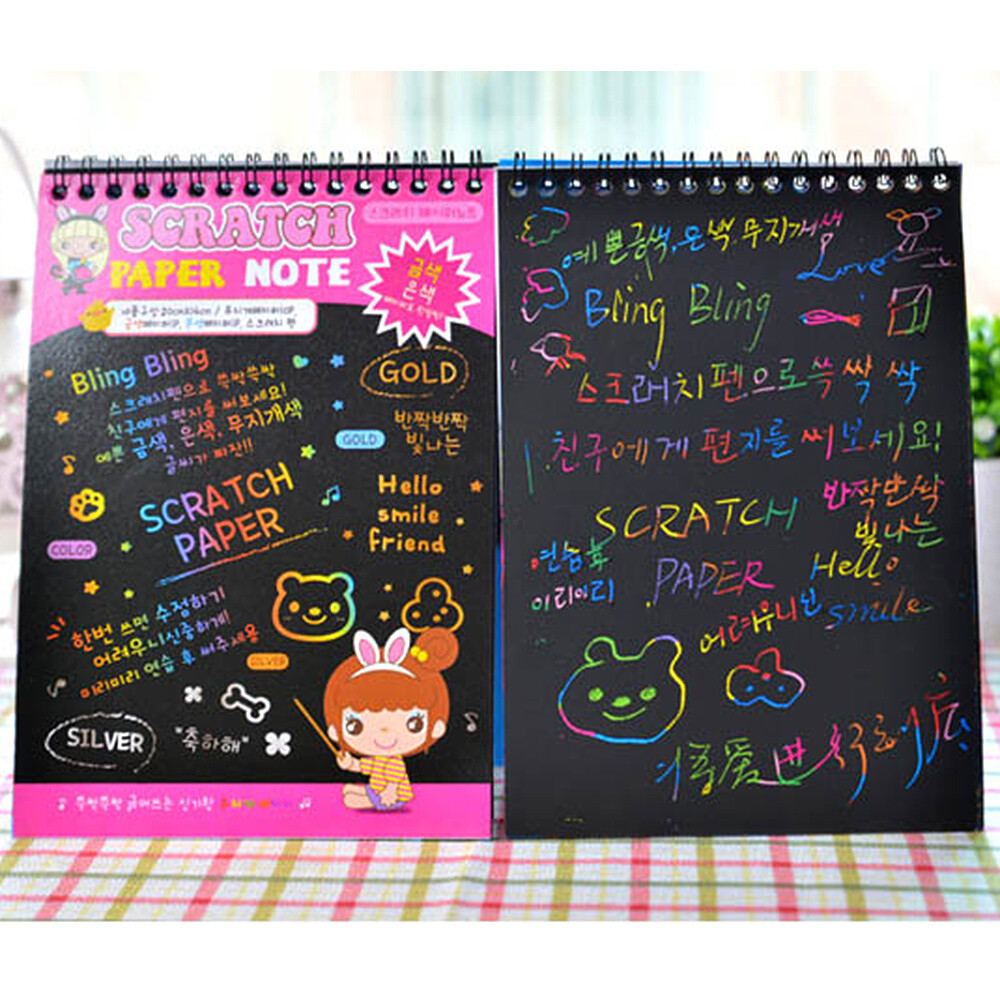 SCRATCH
스크래치 페이퍼노트
PAPER NOTE
금색
은색
Bling Bling
스크래치펜으로 쓱싹쓱싹
친구에게 편지를 써보세요!
예쁜 금색, 은색, 무지개색
글씨가 짜잔!!
GOLD
GOLD
반짝반짝
빛나는
SCRATCH
PAPER
Hello
smile
friend
COLOR
한번 쓰면 수정하기
어려우니신중하게!
미리미리 연습 후 써주세용
SILVER
SILVER
"축하해"
예쁜금색.은색.무지개색
Love
Bling Bling
스크래치펜으로쓱싹싹
친구에게 편지를써보세요!
SCRATCH
PAPER
반짝반짝
빛나는
연습후
미리미리
Hello
smile
어려우니신